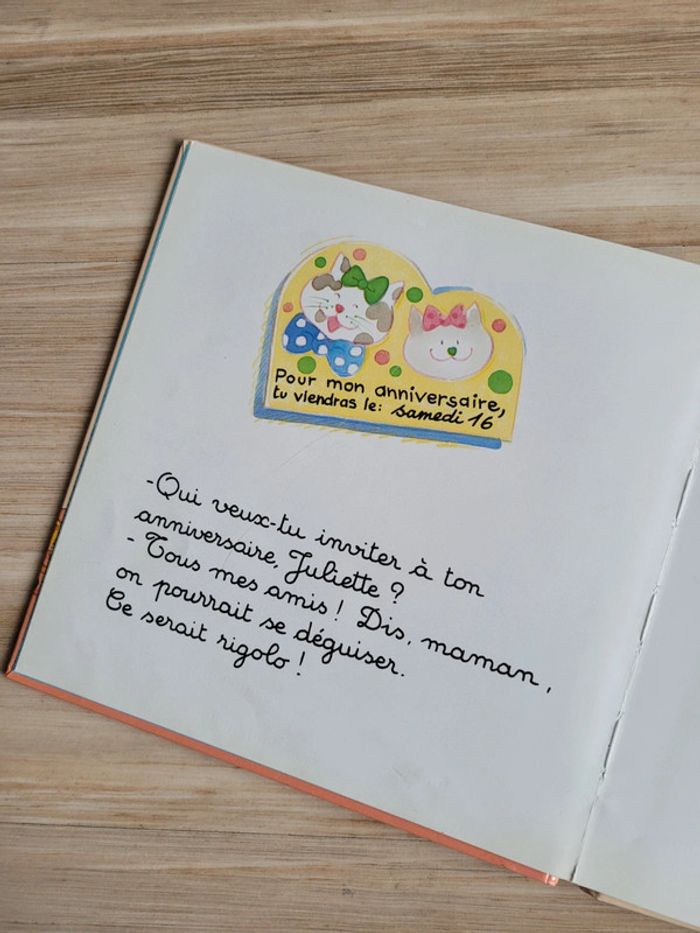 Pour mon anniversaire,
tu viendras le: samedi 16
-Qui veux-tu inviter à ton
anniversaire, Juliette ?
- Tous mes amis ! Dis, maman,
on pourrait se déguiser.
Ce serait rigolo !